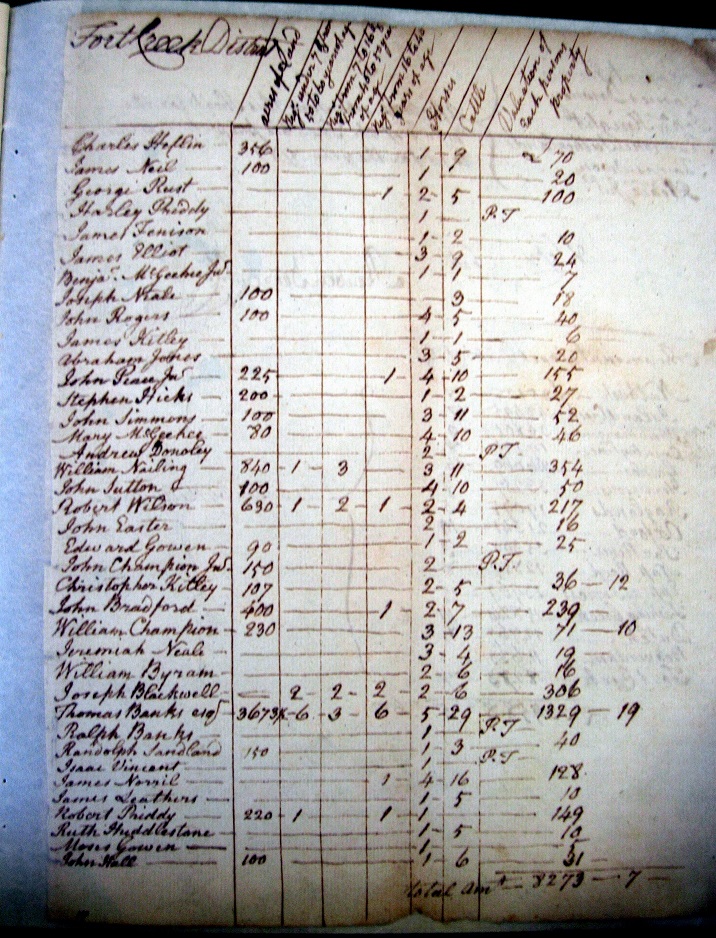 Fort Creek District
acres of land
Neg. under 7 & from 50 to 60 years of age
Neg. from 7 to 16 & from 40 to 50 years of age
Neg. from 16 to 40 years of age
Horses
Cattle
Valuation of each persons property
Charles Heflin — 356 — 1 — 9 — 70
James Neil — 100 — 1 — 20
George Rust — 1 — 2 — 5 — 100
Harley Priddy — 1 — P.T
James Fenison — 1 — 2 — 10
James Elliot — 3 — 9 — 24
Benja. McGehee Jur. — 1 — 1 — 7
Joseph Neale — 100 — 3 — 18
John Rogers — 100 — 4 — 5 — 40
James Kitley — 1 — 1 — 6
Abraham Jones — 3 — 5 — 20
John Peace Jur. — 225 — 1 — 4 — 10 — 155
Stephen Hicks — 200 — 1 — 2 — 27
John Simmons — 100 — 3 — 11 — 52
Mary McGehee — 80 — 4 — 10 — 46
Andrew Donoley — 2 — P.T
William Nailing — 840 — 1 — 3 — 3 — 11 — 354
John Sutton — 100 — 4 — 10 — 50
Robert Wilson — 630 — 1 — 2 — 1 — 2 — 4 — 217
John Easter — 2 — 16
Edward Gowen — 90 — 1 — 2 — 25
John Champion Jur. — 150 — 2 — P.T.
Christopher Kitley — 107 — 2 — 5 — 36 — 12
John Bradford — 400 — 1 — 2 — 7 — 239
William Champion — 230 — 3 — 13 — 71 — 10
Jeremiah Neale — 3 — 4 — 19
William Byram — 2 — 6 — 16
Joseph Blackwell — 2 — 2 — 2 — 2 — 6 — 306
Thomas Banks esqr — 3673 — 6 — 3 — 6 — 5 — 29 — 1329 — 19
Ralph Banks — 1 — P.T
Randolph Sandland — 150 — 1 — 3 — 40
Isaac Vincent — 1 — P.T
James Norril — 1 — 4 — 16 — 128
James Leathers — 1 — 5 — 10
Robert Priddy — 220 — 1 — 1 — 1 — 149
Ruth Huddlestane — 1 — 5 — 10
Moses Gowen — 1 — 5
John Hall — 100 — 1 — 6 — 31
total amt — 8273 — 7